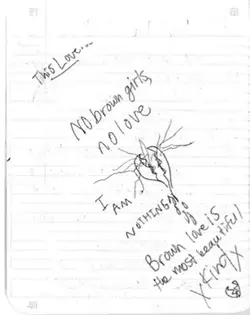 This Love...
No brown girls,
no love
I AM
NOTHING
Brown love is
the most beautiful